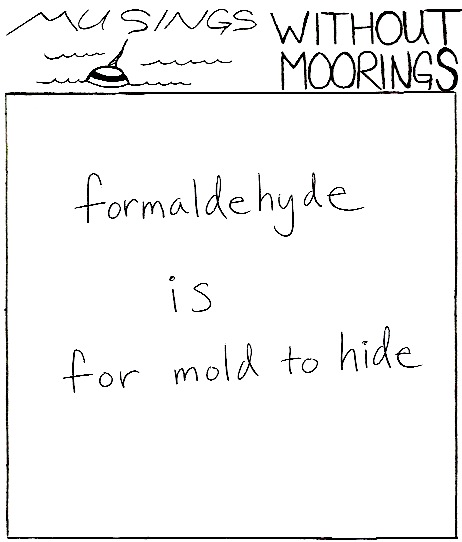 MUSINGS WITHOUT
MOORINGS
formaldehyde
is
for mold to hide